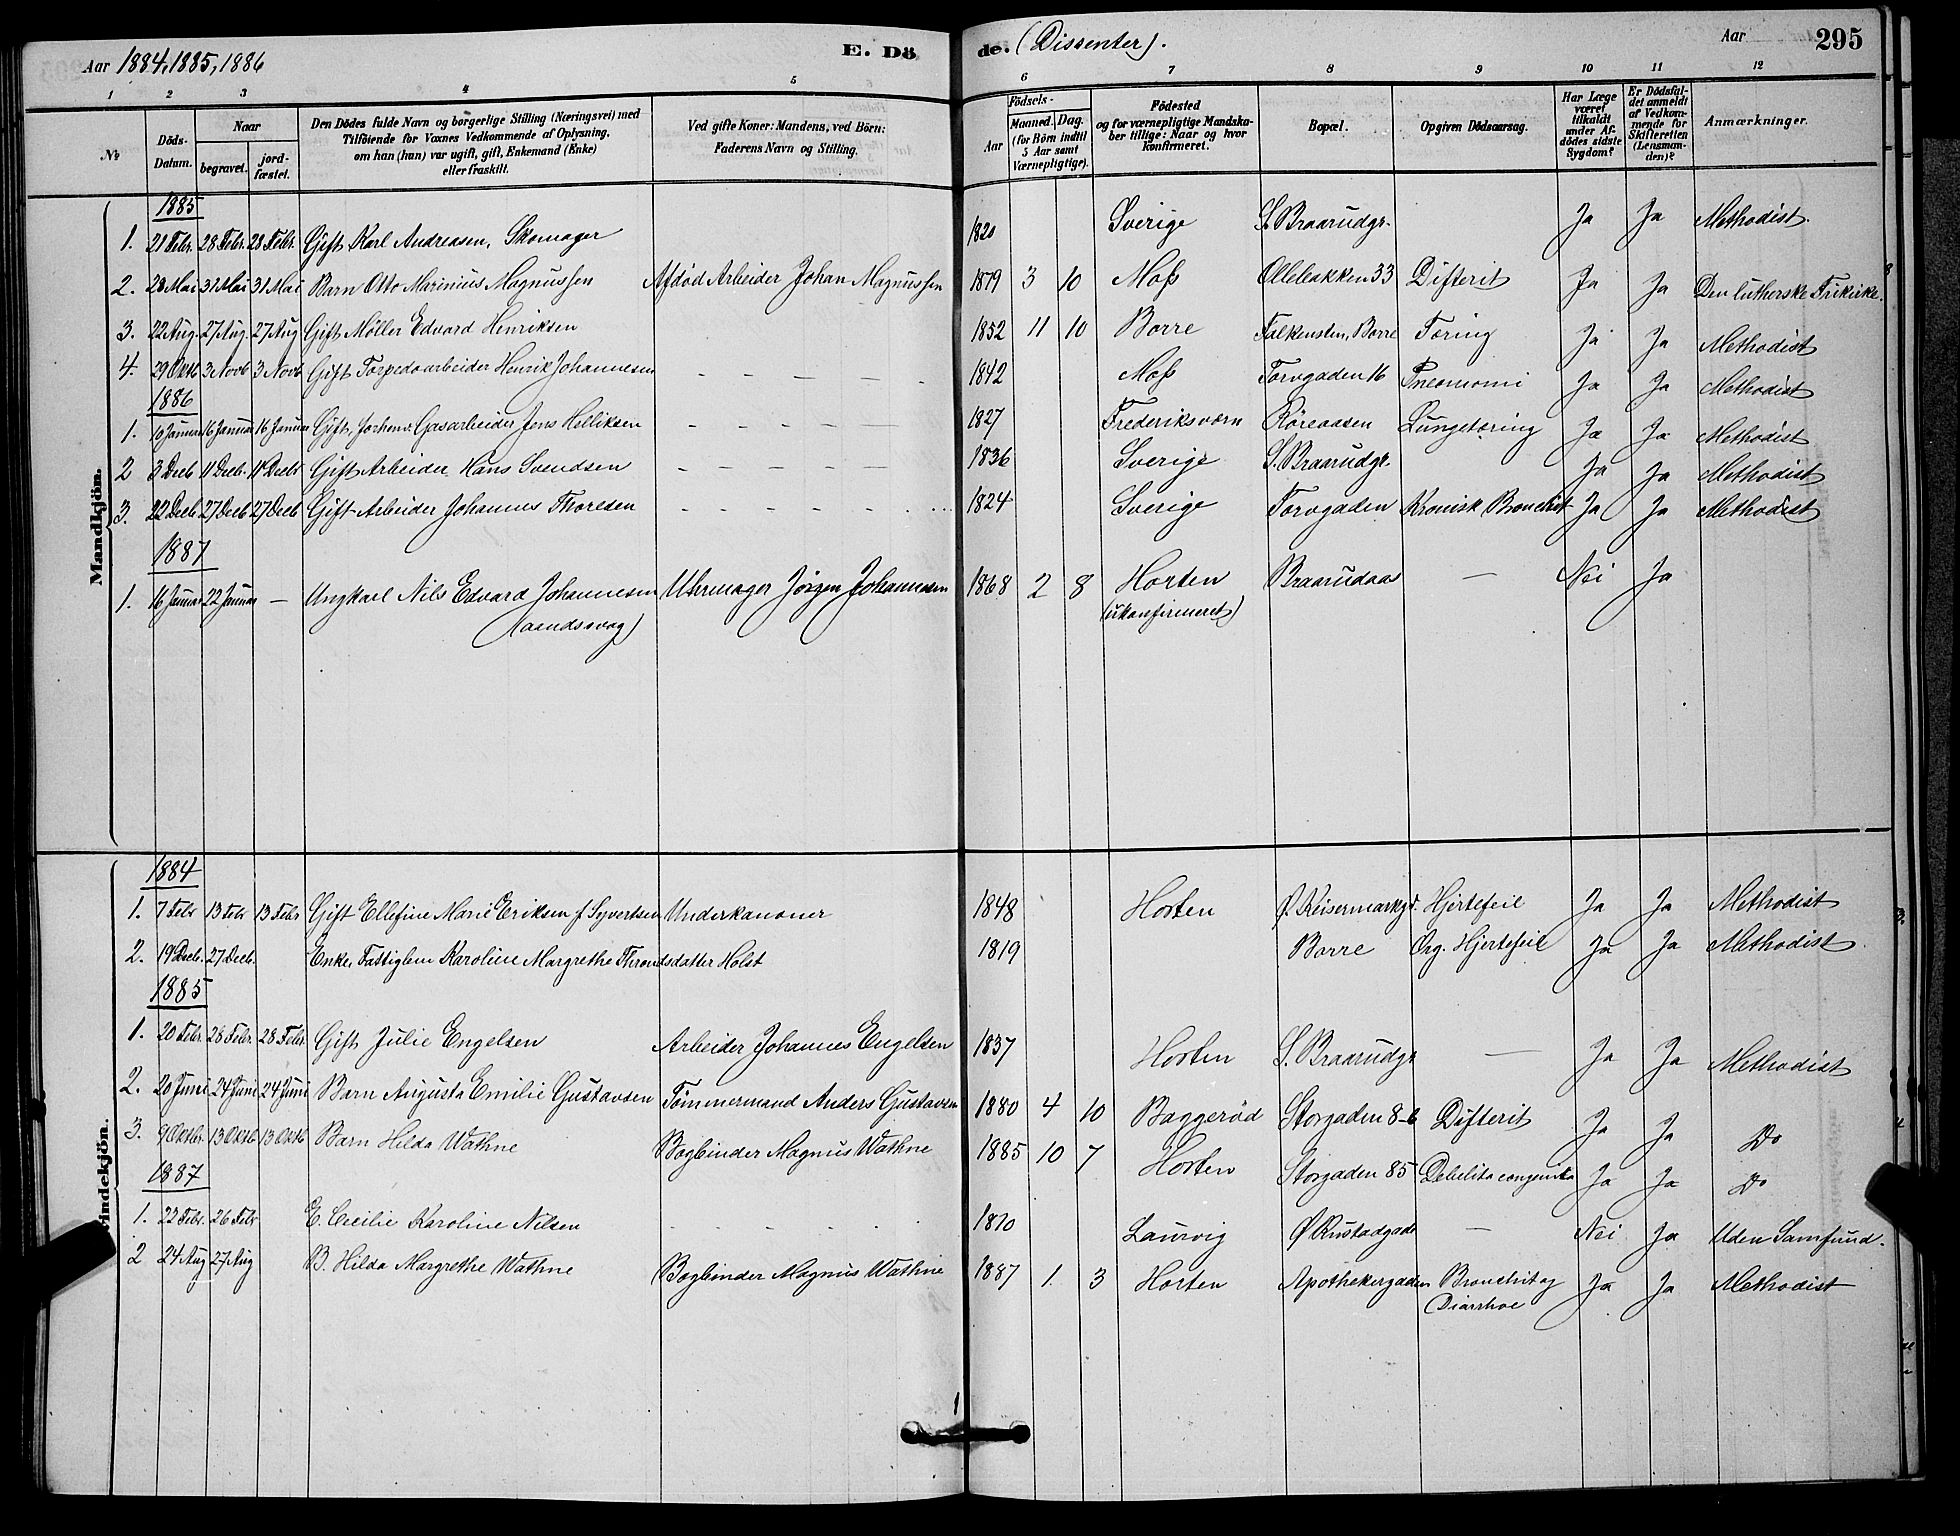 Aar 1884, 1885, 1886
E. Dö
de. (Dissenter).
Aar
295
1 2 3 4 5 6 7 8 9 10 11 12
№
Döds-Datum.
Naar
begravet.
jord-fæstet.
Den Dödes fulde Navn og borgerlige Stilling (Næringsvei) med
Tilföiende for Voxnes Vedkommende af Oplysning,
om han (hun) var ugift, gift, Enkemand (Enke)
eller fraskilt.
Ved gifte Koner: Mandens, ved Börn:
Faderens Navn og Stilling.
Födsels-
Aar
Maaned. Dag.
(for Börn indtil
5 Aar samt
Værnepligtige).
Födested
og for værnepligtige Mandska-
ber tillige: Naar og hvor
Konfirmeret.
Bopæl.
Opgiven Dödsaarsag.
Har Læge
været
tilkaldt
under Af-
dödes sidste
Sygdom?
Er Dödsfal-
det anmeldt
af Vedkom-
mende for
Skifteretten
(Lensman-
den)?
Anmærkninger.
Mandkjön.
1885
1. 21 Febr. 28 Febr. 28 Febr. Gift Karl Andreasen, Skomager 1820 Sverige S. Braarudgr. Ja Ja Methodist.
2. 28 Mai 31 Mai 31 Mai Barn Otto Marinius Magnussen Afdød Arbeider Johan Magnussen 1879 3 10 Moss Ollebakken 33 Difterit Ja Ja Den lutherske Frikirke.
3. 22 Aug. 27 Aug. 27 Aug Gift Møller Edvard Henriksen 1852 11 10 Borre Falkensten, Borre Tæring Ja Ja Methodist
4. 29 Oktb 3 Novb 3 Novb Gift Torpedoarbeider Henrik Johannesen - - - - - 1842 Moss Torvgaden 16 Pneomomi Ja Ja Methodist
1886
1. 10 Januar 16 Januar 16 Januar Gift, Gasarbeider Jens Helliksen - - - - - 1827 Frederiksværn Røreaasen Lungetæring Ja Ja Methodist
2 3 Decb 11 Decb. 11 Decbr Gift Arbeider Hans Svendsen - - - - - 1836 Sverige S. Braarudgr. Ja Ja Methodist
3. 22 Decb 27 Decb 27 Decb Gift Arbeider Johannes Thoresen - - - - - 1824 Sverige Torvgaden Kronisk Bronchit Ja Ja Methodist
1887
1. 16 Januar 22 Januar — Ungkarl Nils Edvard Johannesen Uhrmager Jørgen Johannesen 1868 2 8 Horten Braarudaas — Nei Ja
(aandssvag) (ukonfirmeret)
Kvindekjön.
1884
1. 7 Febr 13 Febr 13 Febr Gift Ellefine Marie Eriksen f. Syvertsen Underkanoner 1848 Horten Ø. Keisermarkgd. Hjertefeil Ja Ja Methodist
2. 19 Decb. 27 Decb. Enke, Fattiglem Karoline Margrethe Throndsdatter Holst 1819 Borre Org. Hjertefeil Ja Ja Methodist
1885
1. 20 Febr. 28 Febr. 28 Febr. Gift Julie Engelsen Arbeider Johannes Engelsen 1837 Horten S. Braarudgr — Ja Ja Methodist
2. 20 Juni 24 Juni 24 Juni Barn Augusta Emilie Gustavsen Tømmermand Anders Gustavsen 1880 4 10 Baggerød Storgaden 8-6 Difterit Ja Ja Do
3. 9 Oktbr. 13 Oktb 13 Oktb Barn Hilda Wathne Bogbinder Magnus Wathne 1885 10 7 Horten Storgaden 85 Debilita congenita Ja Ja Do
1887
1. 22 Febr. 26 Febr E. Cecilie Karoline Nilsen - - - - - 1810 Laurvig Ø Rustadgade — Nei Ja Uden Samfund.
2 24 Aug 27 Aug B. Hilda Margrethe Wathne Bogbinder Magnus Wathne 1887 1. 3 Horten Apothekergaden Bronchit og Ja Ja Methodist
Diarrhoe